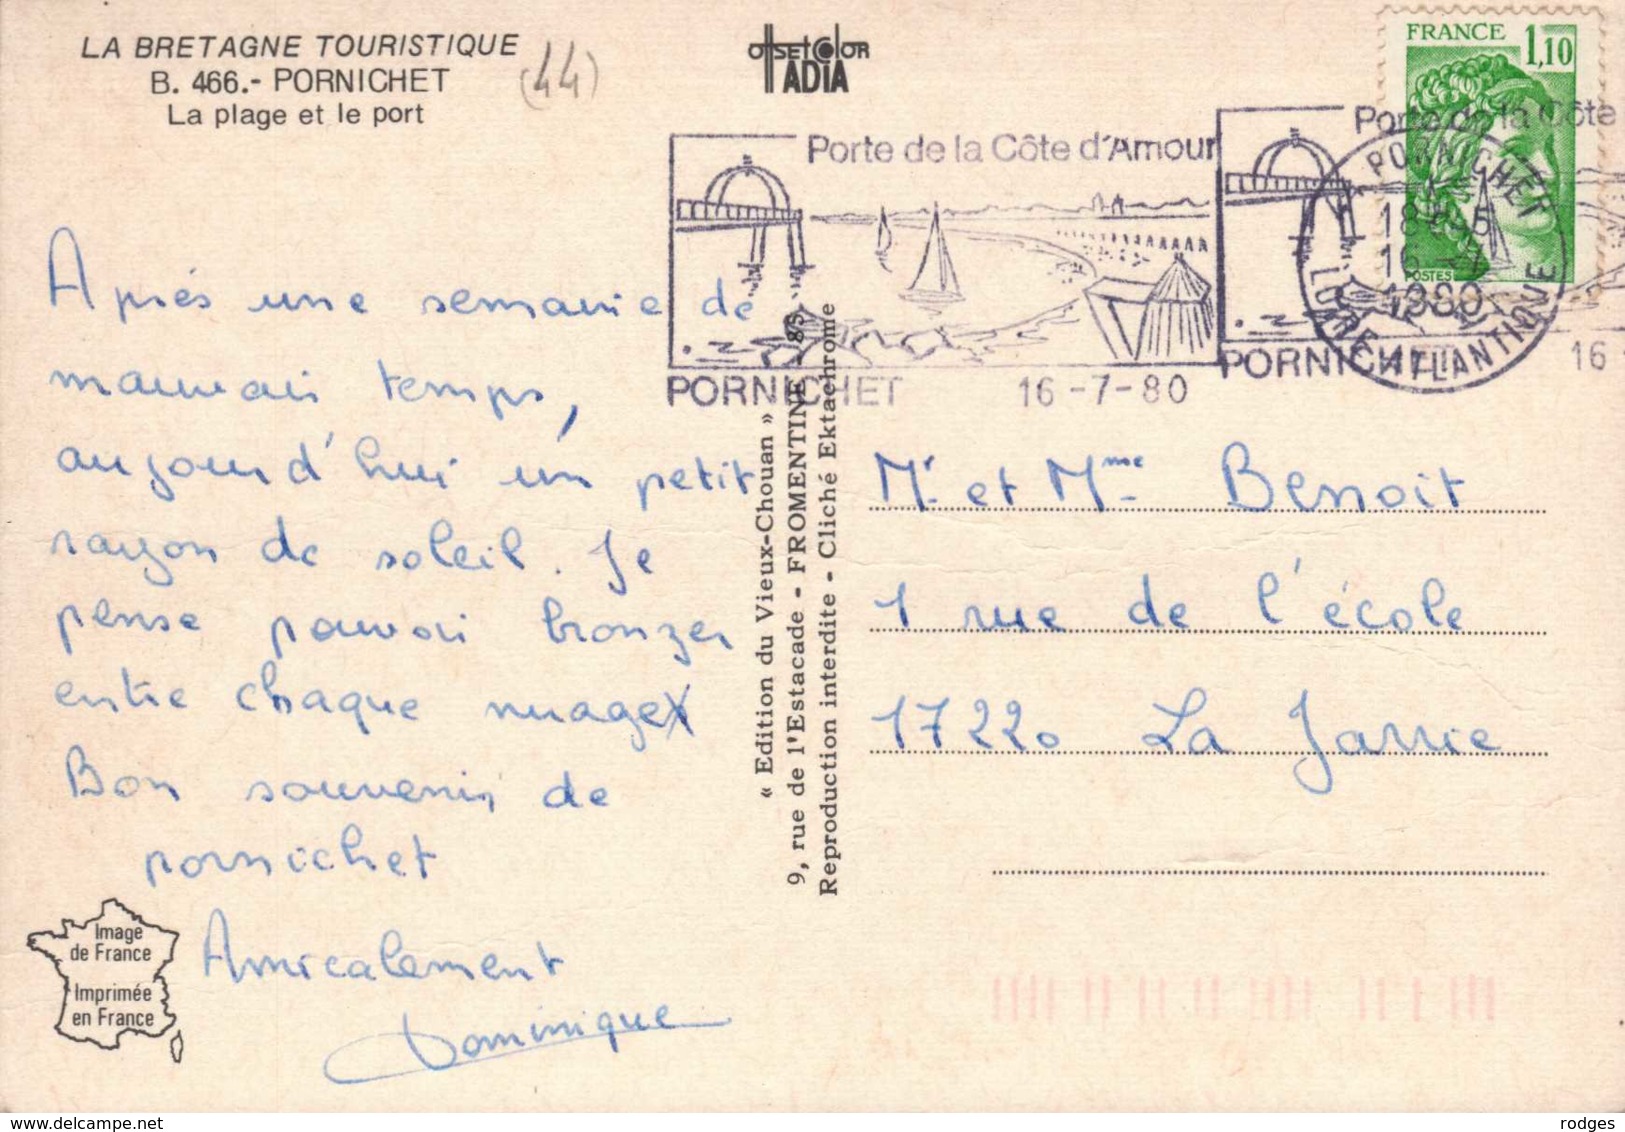 LA BRETAGNE TOURISTIQUE
B. 466.- PORNICHET
La plage et le port
(44)
OffsetColor
ADIA
FRANCE 1,10
POSTES
Porte de la Côte d'Amour
Porte de la Côte
PORNICHET
16 -7-80
PORNICHET
16
PORNICHET
1980
LOIRE ATLANTIQUE
Après une semaine de
mauvais temps,
aujourd'hui un petit
rayon de soleil. Je
pense pouvoir bronzer
entre chaque nuage
Bon souvenir de
pornichet
Amicalement
Dominique
« Edition du Vieux-Chouan »
9, rue de l'Estacade - FROMENTINE - 85
Reproduction interdite - Cliché Ektachrome
Mr et Mme Benoit
1 rue de l'école
17220 La Jarrie
Image
de France
Imprimée
en France
rodges